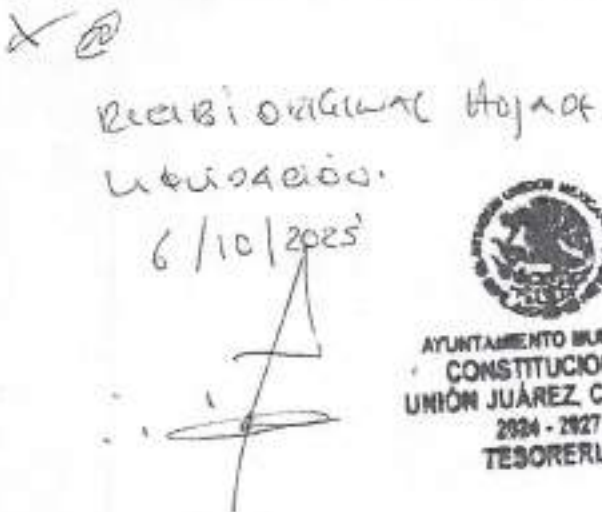 RECIBI ORIGINAL HOJA DE
LIQUIDACIÓN.
6/10/2025
AYUNTAMIENTO MU
CONSTITUCIO
UNIÓN JUÁREZ, C
2024 - 2027
TESORERI